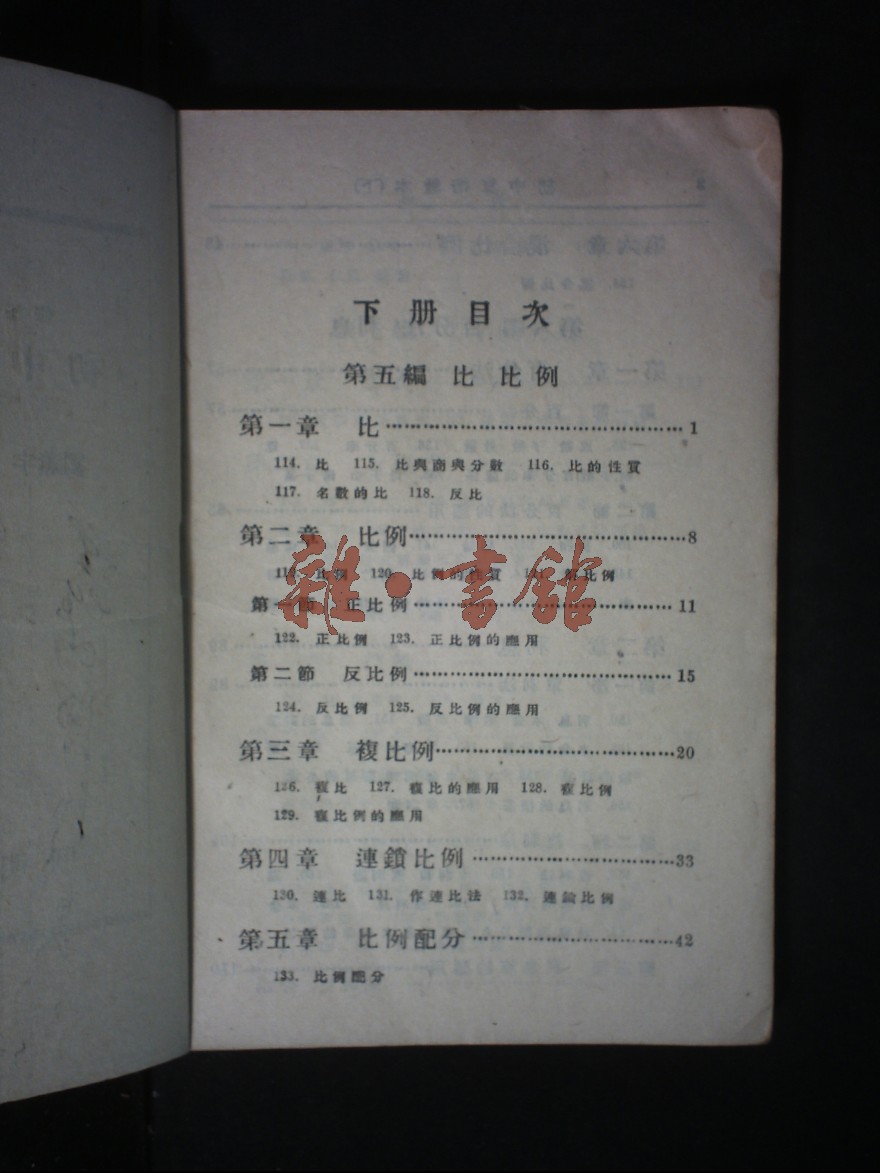 下册目次
第五編 比 比例
第一章 比……………………………………1
114. 比 115. 比與商與分數 116. 比的性質
117. 名數的比 118. 反比
第二章 比例……………………………………8
比例 120. 比例的性質 解比例
第一節 正比例……………………………………11
122. 正比例 123. 正比例的應用
第二節 反比例……………………………………15
124. 反比例 125. 反比例的應用
第三章 複比例……………………………………20
126. 複比 127. 複比的應用 128. 複比例
129. 複比例的應用
第四章 連鎖比例……………………………………33
130. 連比 131. 作連比法 132. 連鎖比例
第五章 比例配分……………………………………42
133. 比例配分
雜·書館